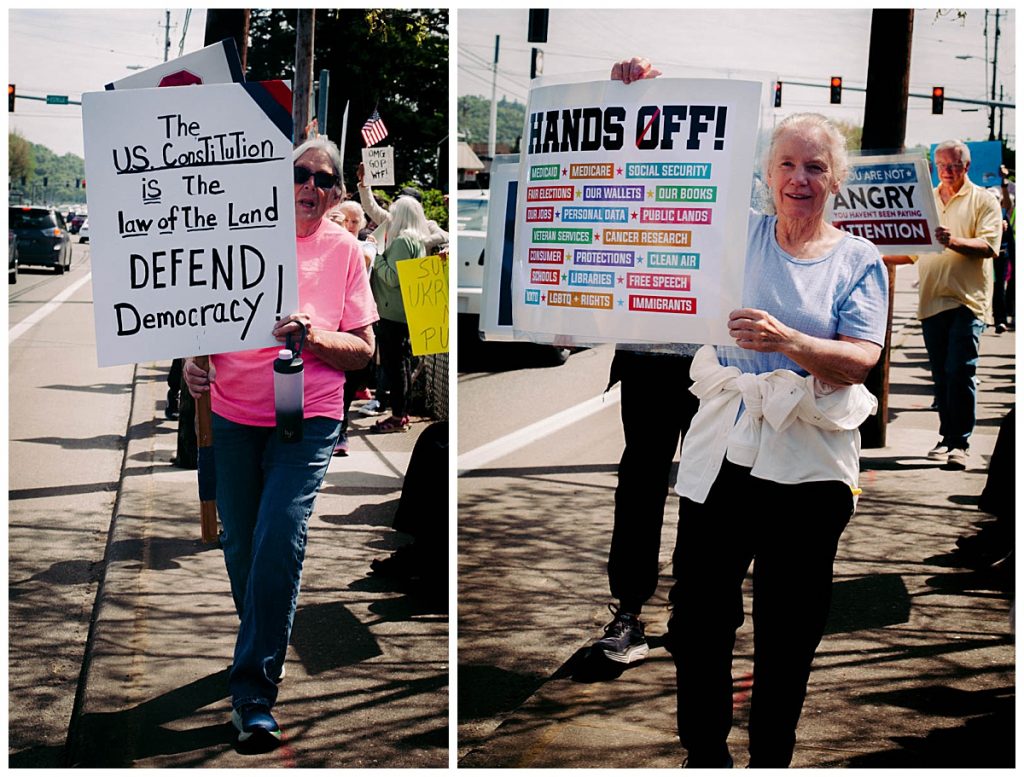 The
U.S. Constitution
is The
law of The Land
DEFEND
Democracy!
OMG
GOP
WTF!
HANDS OFF!
MEDICAID ★ MEDICARE ★ SOCIAL SECURITY
FAIR ELECTIONS ★ OUR WALLETS ★ OUR BOOKS
OUR JOBS ★ PERSONAL DATA ★ PUBLIC LANDS
VETERAN SERVICES ★ CANCER RESEARCH
CONSUMER ★ PROTECTIONS ★ CLEAN AIR
SCHOOLS ★ LIBRARIES ★ FREE SPEECH
NATO ★ LGBTQ + RIGHTS ★ IMMIGRANTS
YOU ARE NOT
ANGRY
YOU HAVEN'T BEEN PAYING
ATTENTION